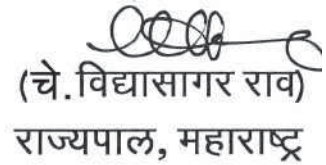 (चे.विद्यासागर राव)
राज्यपाल, महाराष्ट्र